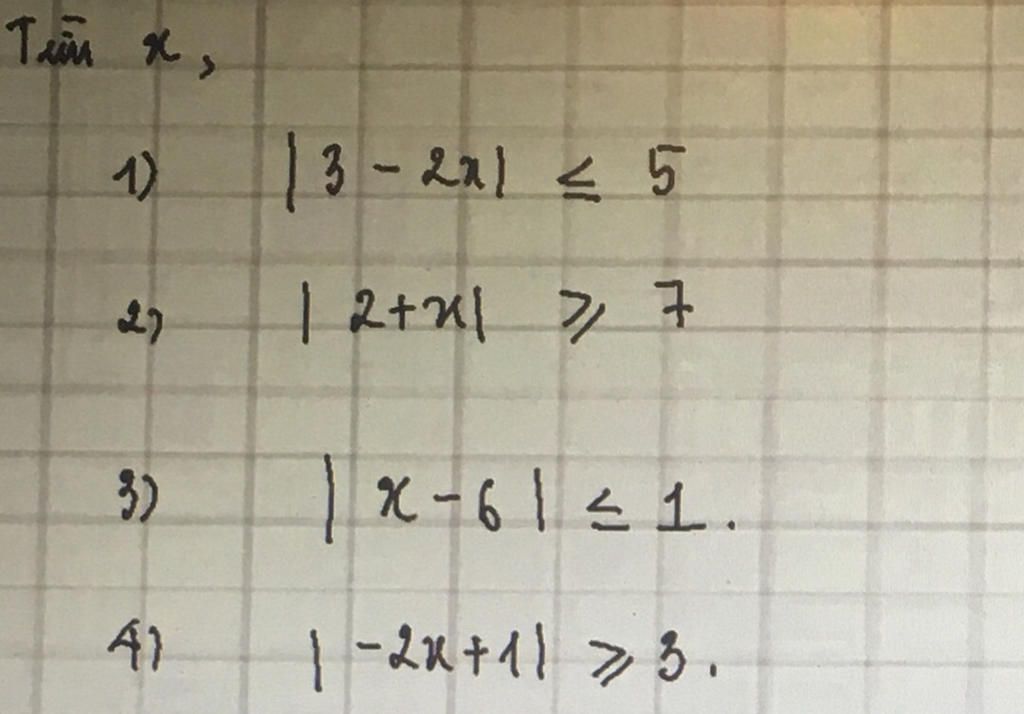 Tìm x,
1) |3 - 2x| ≤ 5
2) |2+x| ⩾ 7
3) |x - 6| ≤ 1.
4) |-2x+1| ⩾ 3.